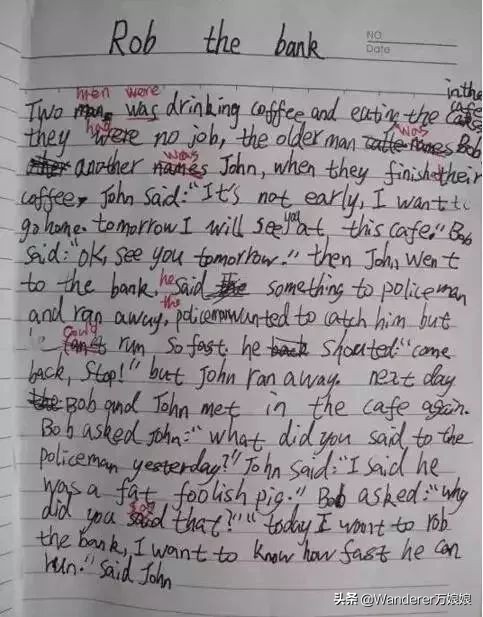 Rob the bank
NO.
Date
in the
men were cafe
Two man was drinking coffee and eating the cakes
had was
they were no job, the older man names Bob
was
another names John, when they finish their
coffee, John said: "It's not early, I want to
you
go home. tomorrow I will see at this cafe." Bob
said: "ok, see you tomorrow." then John went
he
to the bank. said something to policeman
the
and ran away, policeman wanted to catch him but
could
run so fast. he back shouted: "come
back, stop!" but John ran away. next day
the Bob and John met in the cafe again.
Bob asked John: "what did you said to the
policeman yesterday?" John said: "I said he
was a fat foolish pig." Bob asked: "why
say
did you said that?" "today I want to rob
the bank, I want to know how fast he can
run." said John
头条 @Wanderer万娘娘